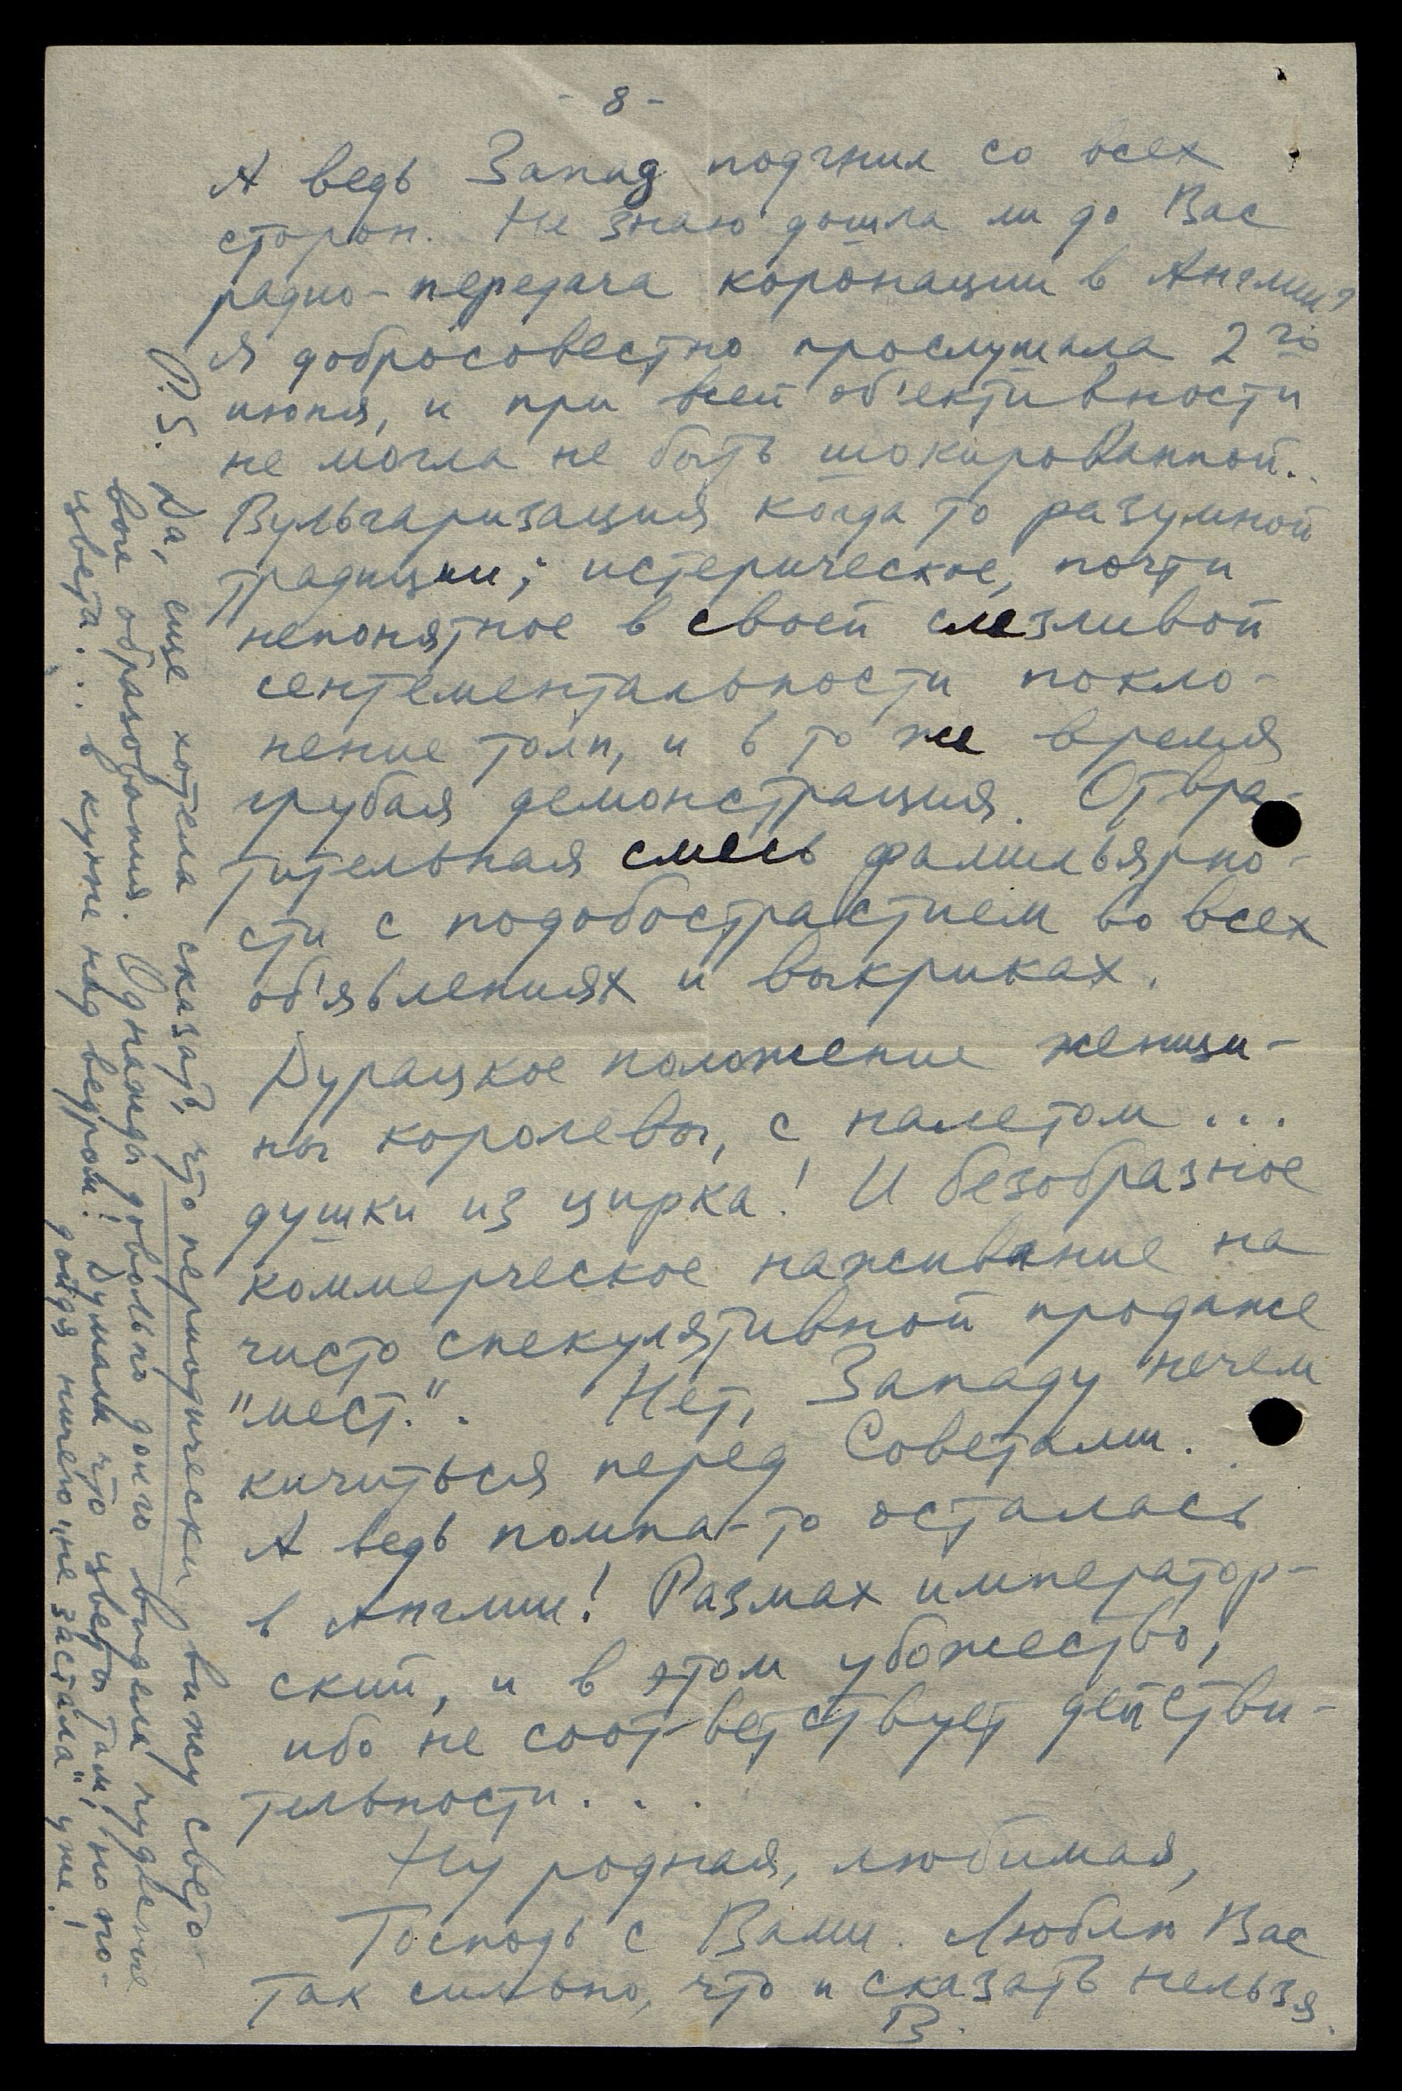 - 8 -
А ведь Запад подгнил со всех
сторон. Не знаю дошла ли до Вас
радио-передача коронации в Англии?
Я добросовестно прослушала 2го
июня, и при всей об'ективности
не могла не быть шокированной..
Вульгаризация когда то разумной
традиции; истерическое, почти
непонятное в своей слезливой
сентементальности покло-
нение толп, и в то же время
грубая демонстрация. Отвра-
тительная смесь фамильярно-
сти с подобострастием во всех
об'явлениях и выкриках.
Дурацкое положение женщи-
ны королевы, с налетом ...
душки из цирка! И безобразное
коммерческое наживание на
чисто спекулятивной продаже
"мест".. Нет, Западу нечем
кичиться перед Советами..
А ведь помпа-то осталась
в Англии! Размах император-
ский, и в этом убожество,
ибо не соответствует действи-
тельности. . .
Ну родная, любимая,
Господь с Вами. Люблю Вас
так сильно, что и сказать нельзя.
В.
P.S. Да, еще хотела сказать, что периодически вижу свето-
вые образования. Однажды довольно долго видела чудные
цвета... в кухне над ведром! Думала что цветы там, но по-
дойдя ничего "не застала" уже!